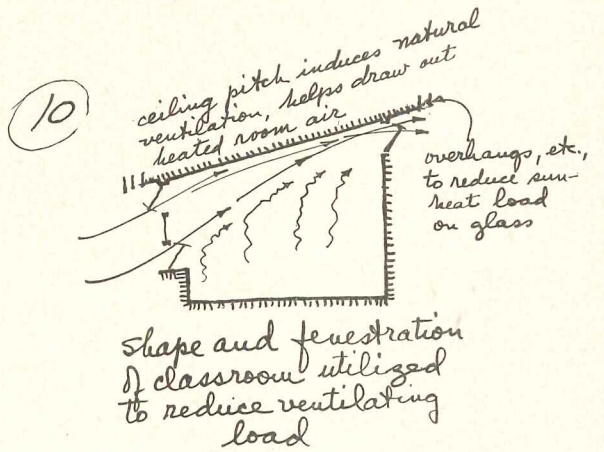 10
ceiling pitch induces natural
ventilation, helps draw out
heated room air
overhangs, etc.,
to reduce sun-
heat load
on glass
shape and fenestration
of classroom utilized
to reduce ventilating
load